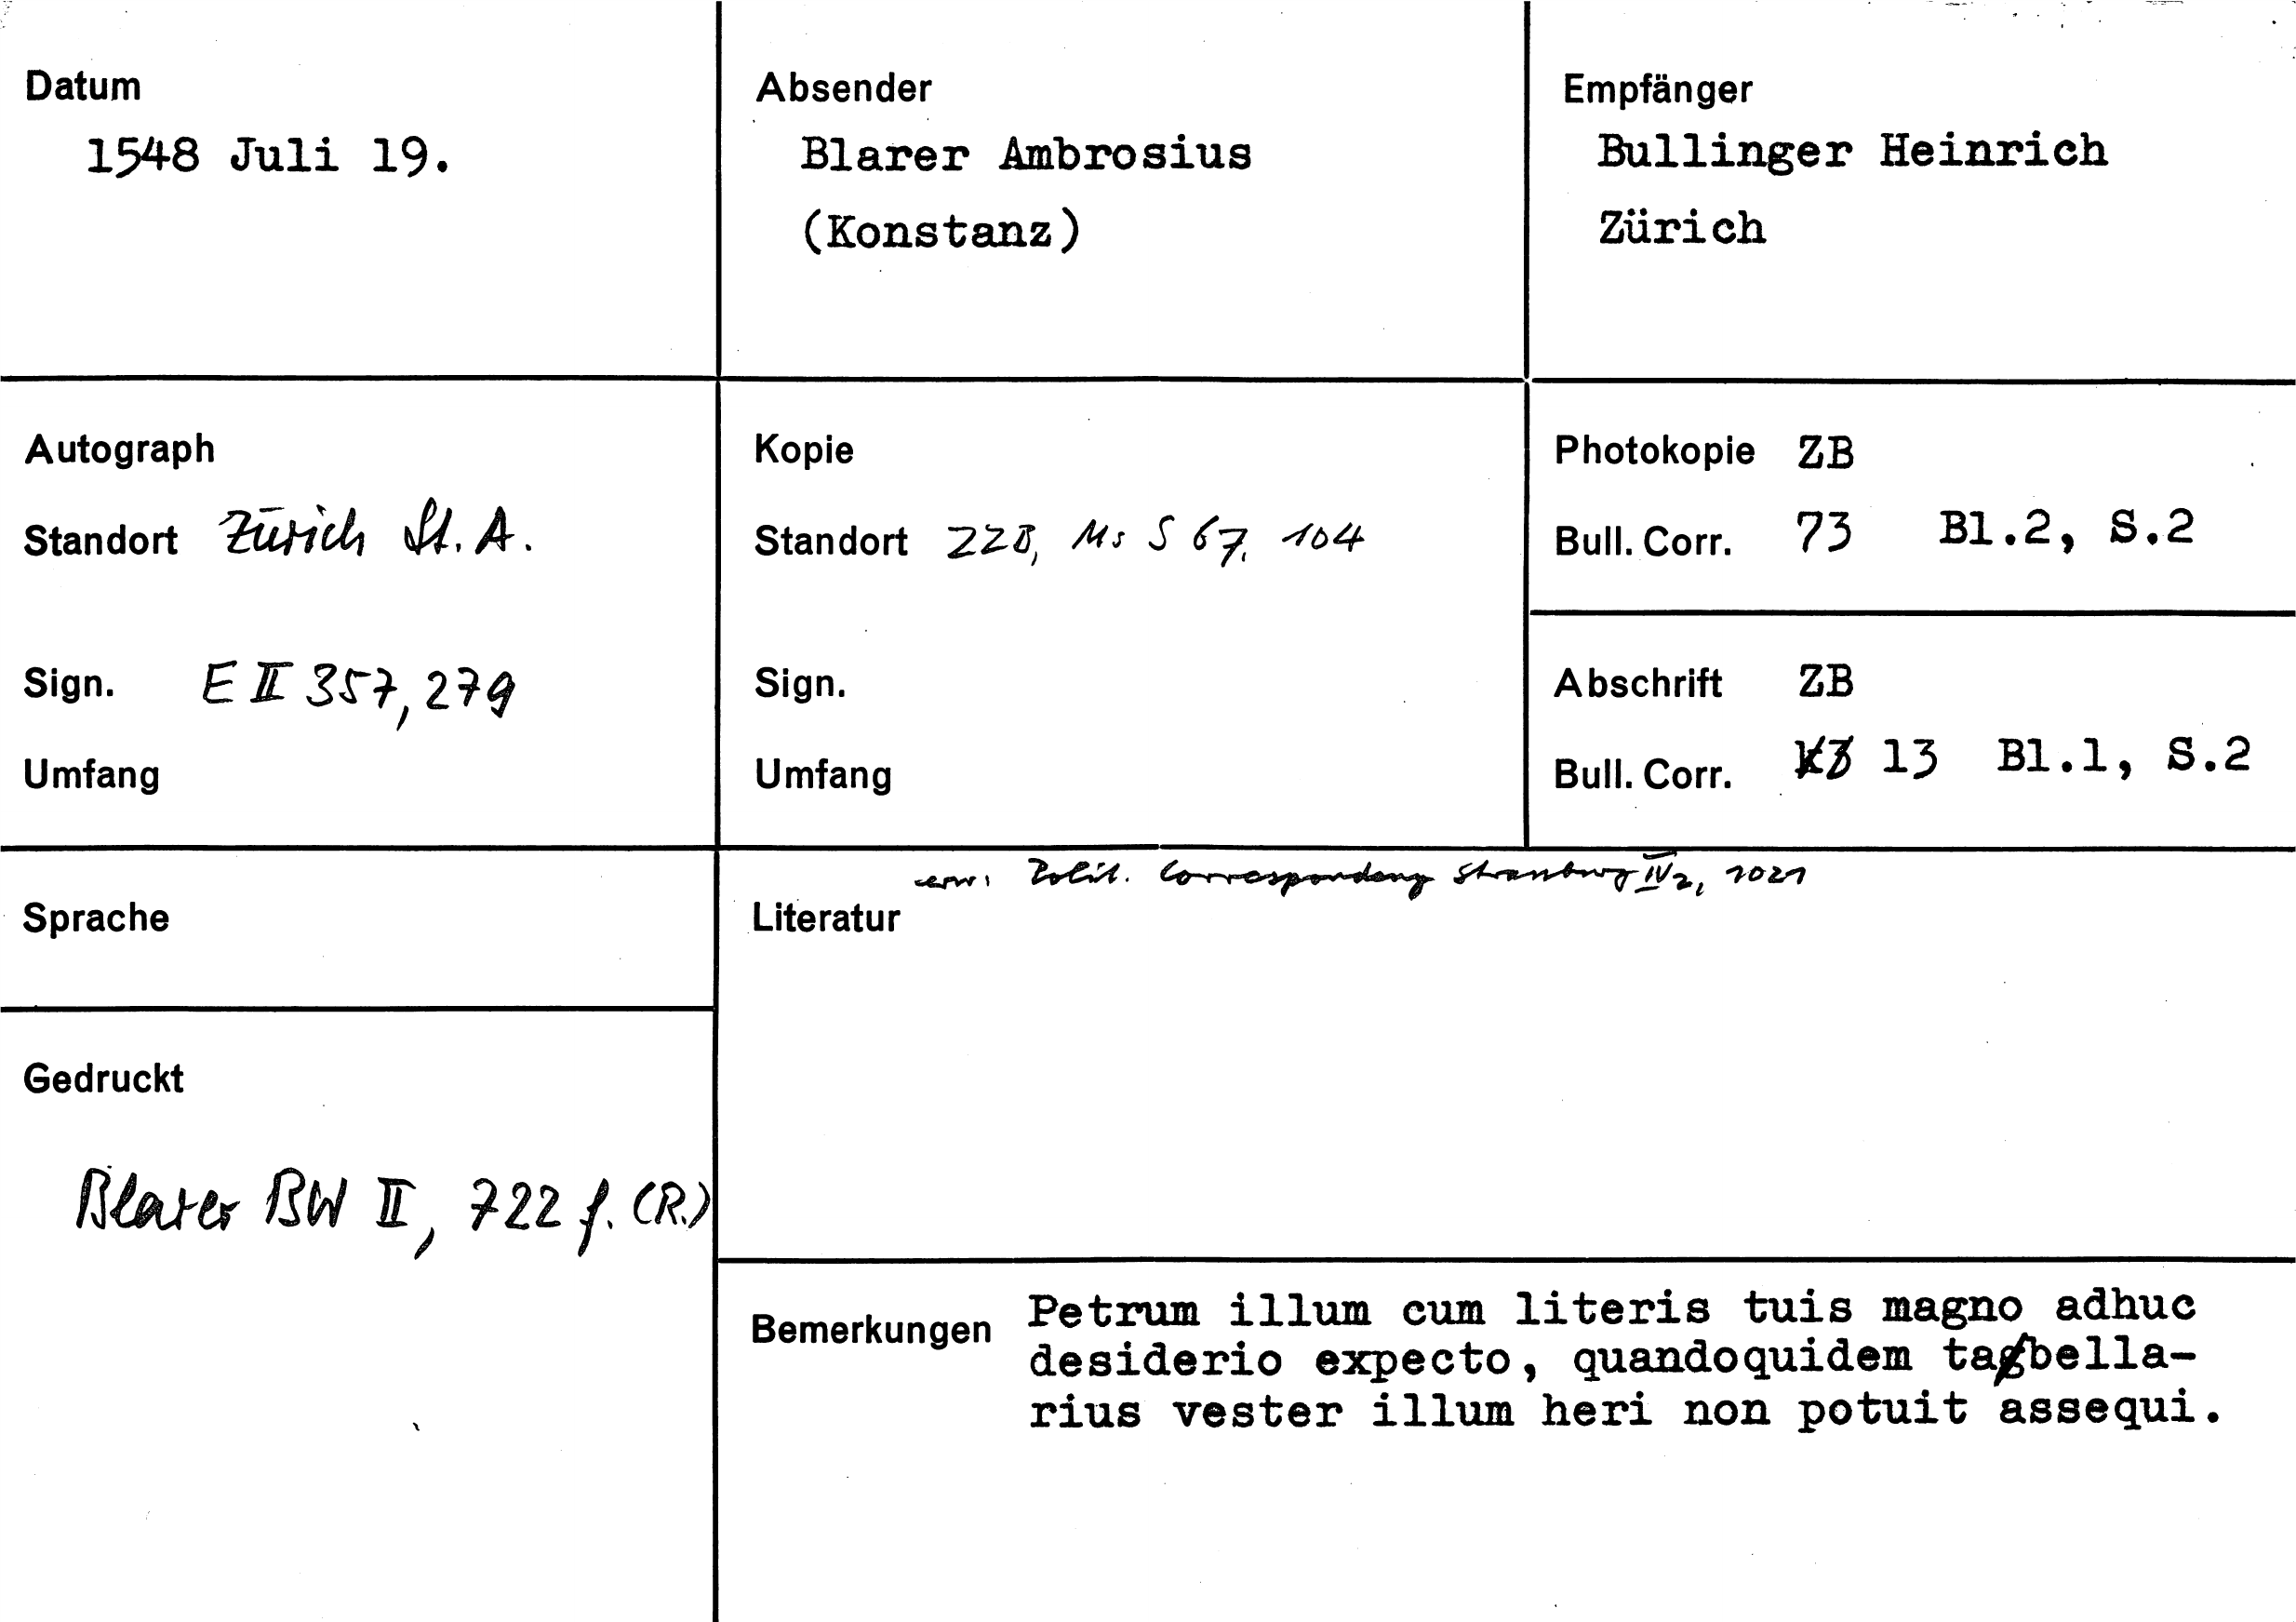 Datum
1548 Juli 19.
Absender
Blarer Ambrosius
(Konstanz)
Empfänger
Bullinger Heinrich
Zürich
Autograph
Standort Zürich St. A.
Sign. E II 357, 279
Umfang
Kopie
Standort ZZB, Ms S 67, 104
Sign.
Umfang
Photokopie ZB
Bull. Corr. 73 Bl.2, S.2
Abschrift ZB
Bull. Corr. 13 Bl.1, S.2
Sprache
Gedruckt
Blarer BW II, 722 f. (R.)
erw: Polit. Correspondenz Strassburg IV 2, 1021
Literatur
Bemerkungen Petrum illum cum literis tuis magno adhuc
desiderio expecto, quandoquidem tabella-
rius vester illum heri non potuit assequi.